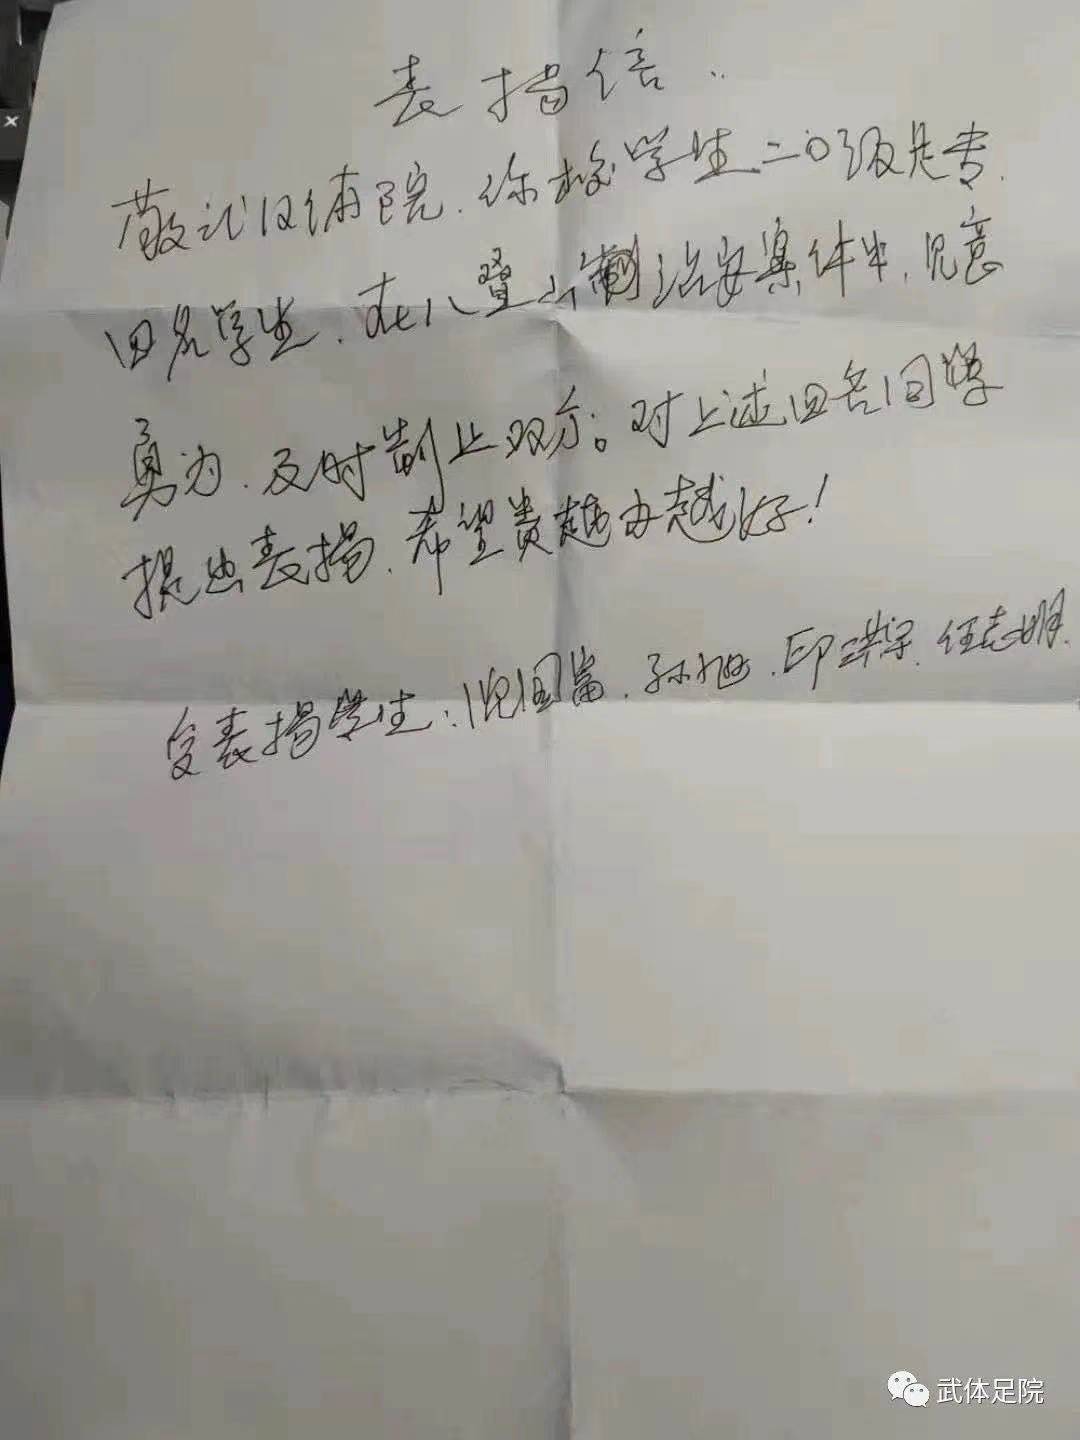 表扬信
敬武汉体院,你校学生二0级足专
四名学生,在八叠山 制治安案件中,见意
勇为,及时制止双方。对上述四名同学
提出表扬,希望贵越办越好!
受表扬学生:倪国富,孙旭,印洪宇,任志明
武体足院